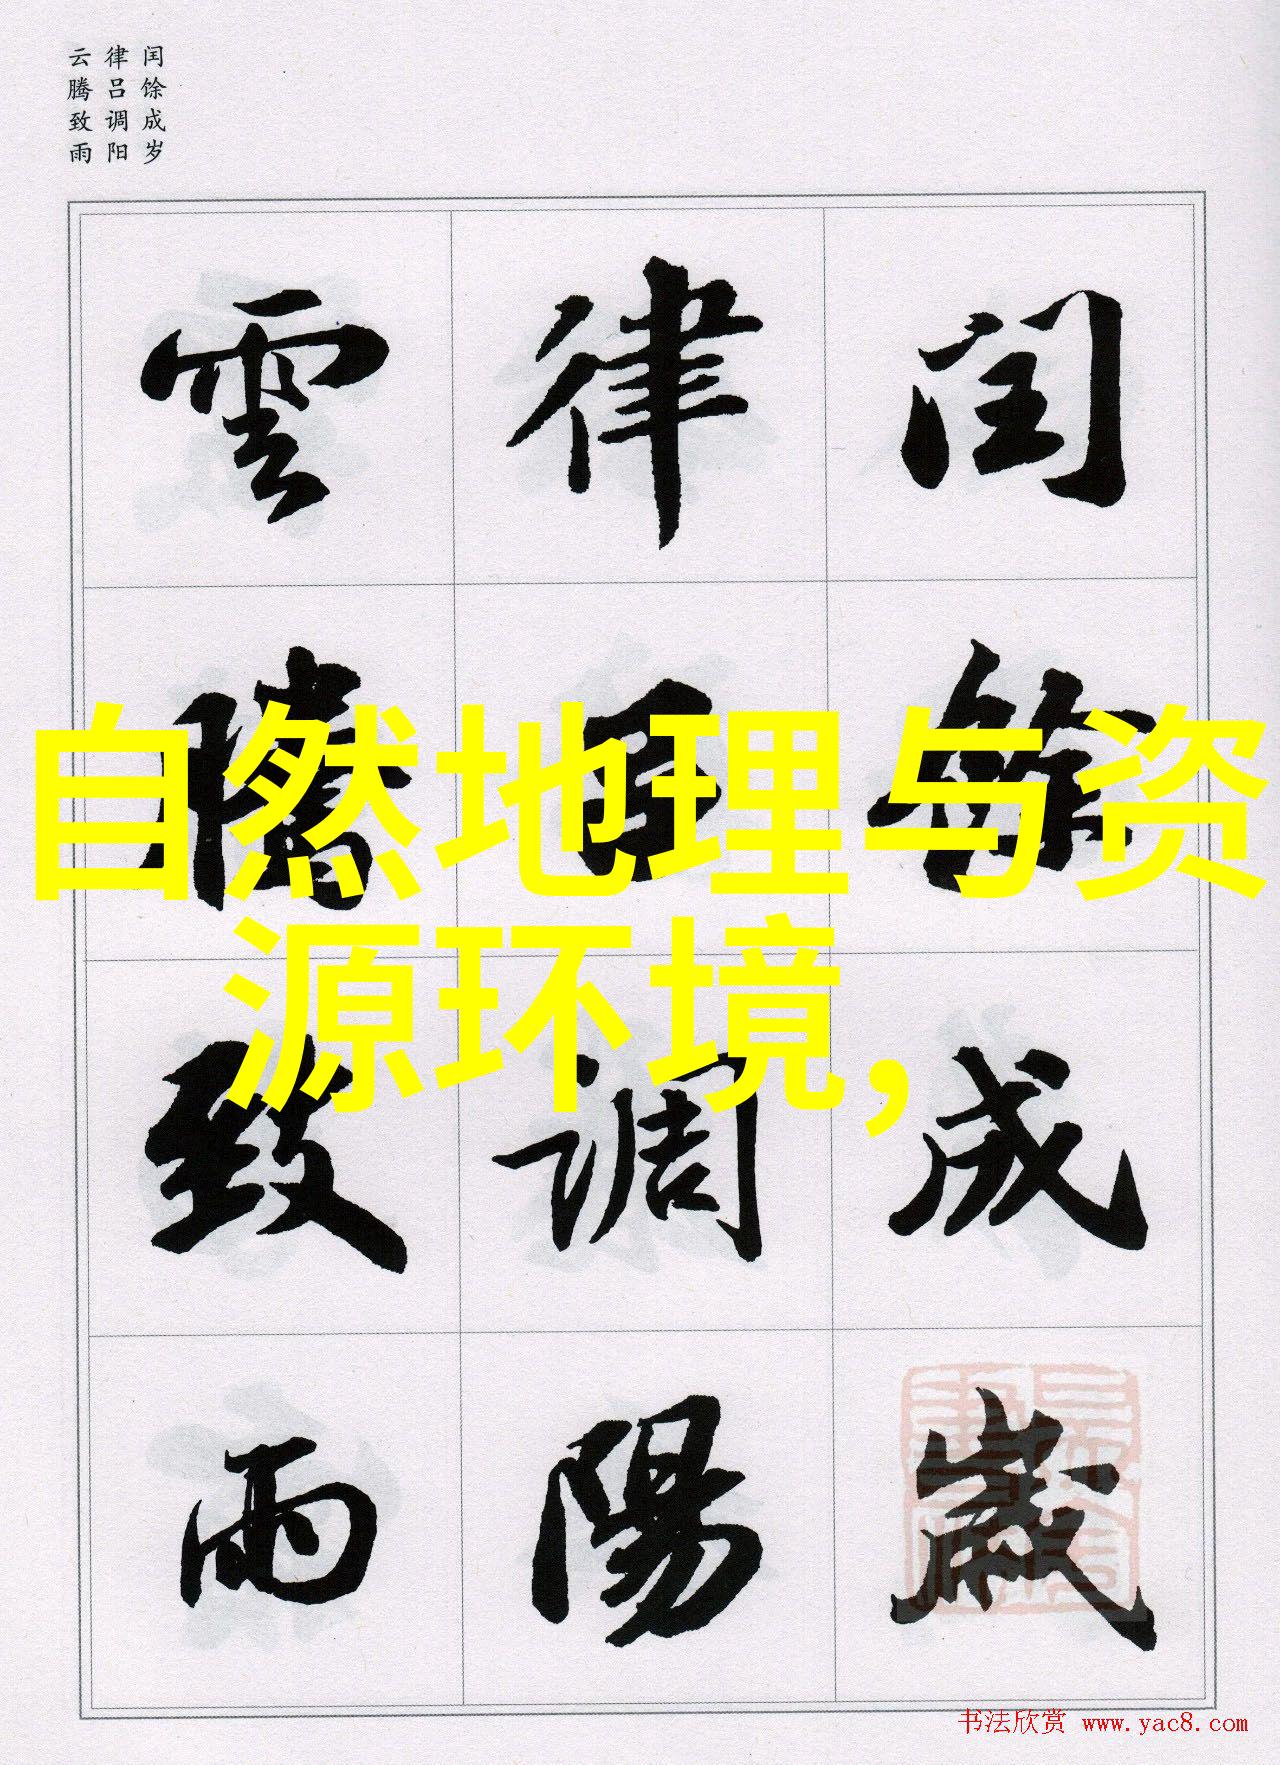 闰馀成岁
律吕调阳
云腾致雨
閏餘成歲
律呂調陽
雲騰致雨
自然地理与资
源环境,
书法欣赏 www.yac8.com